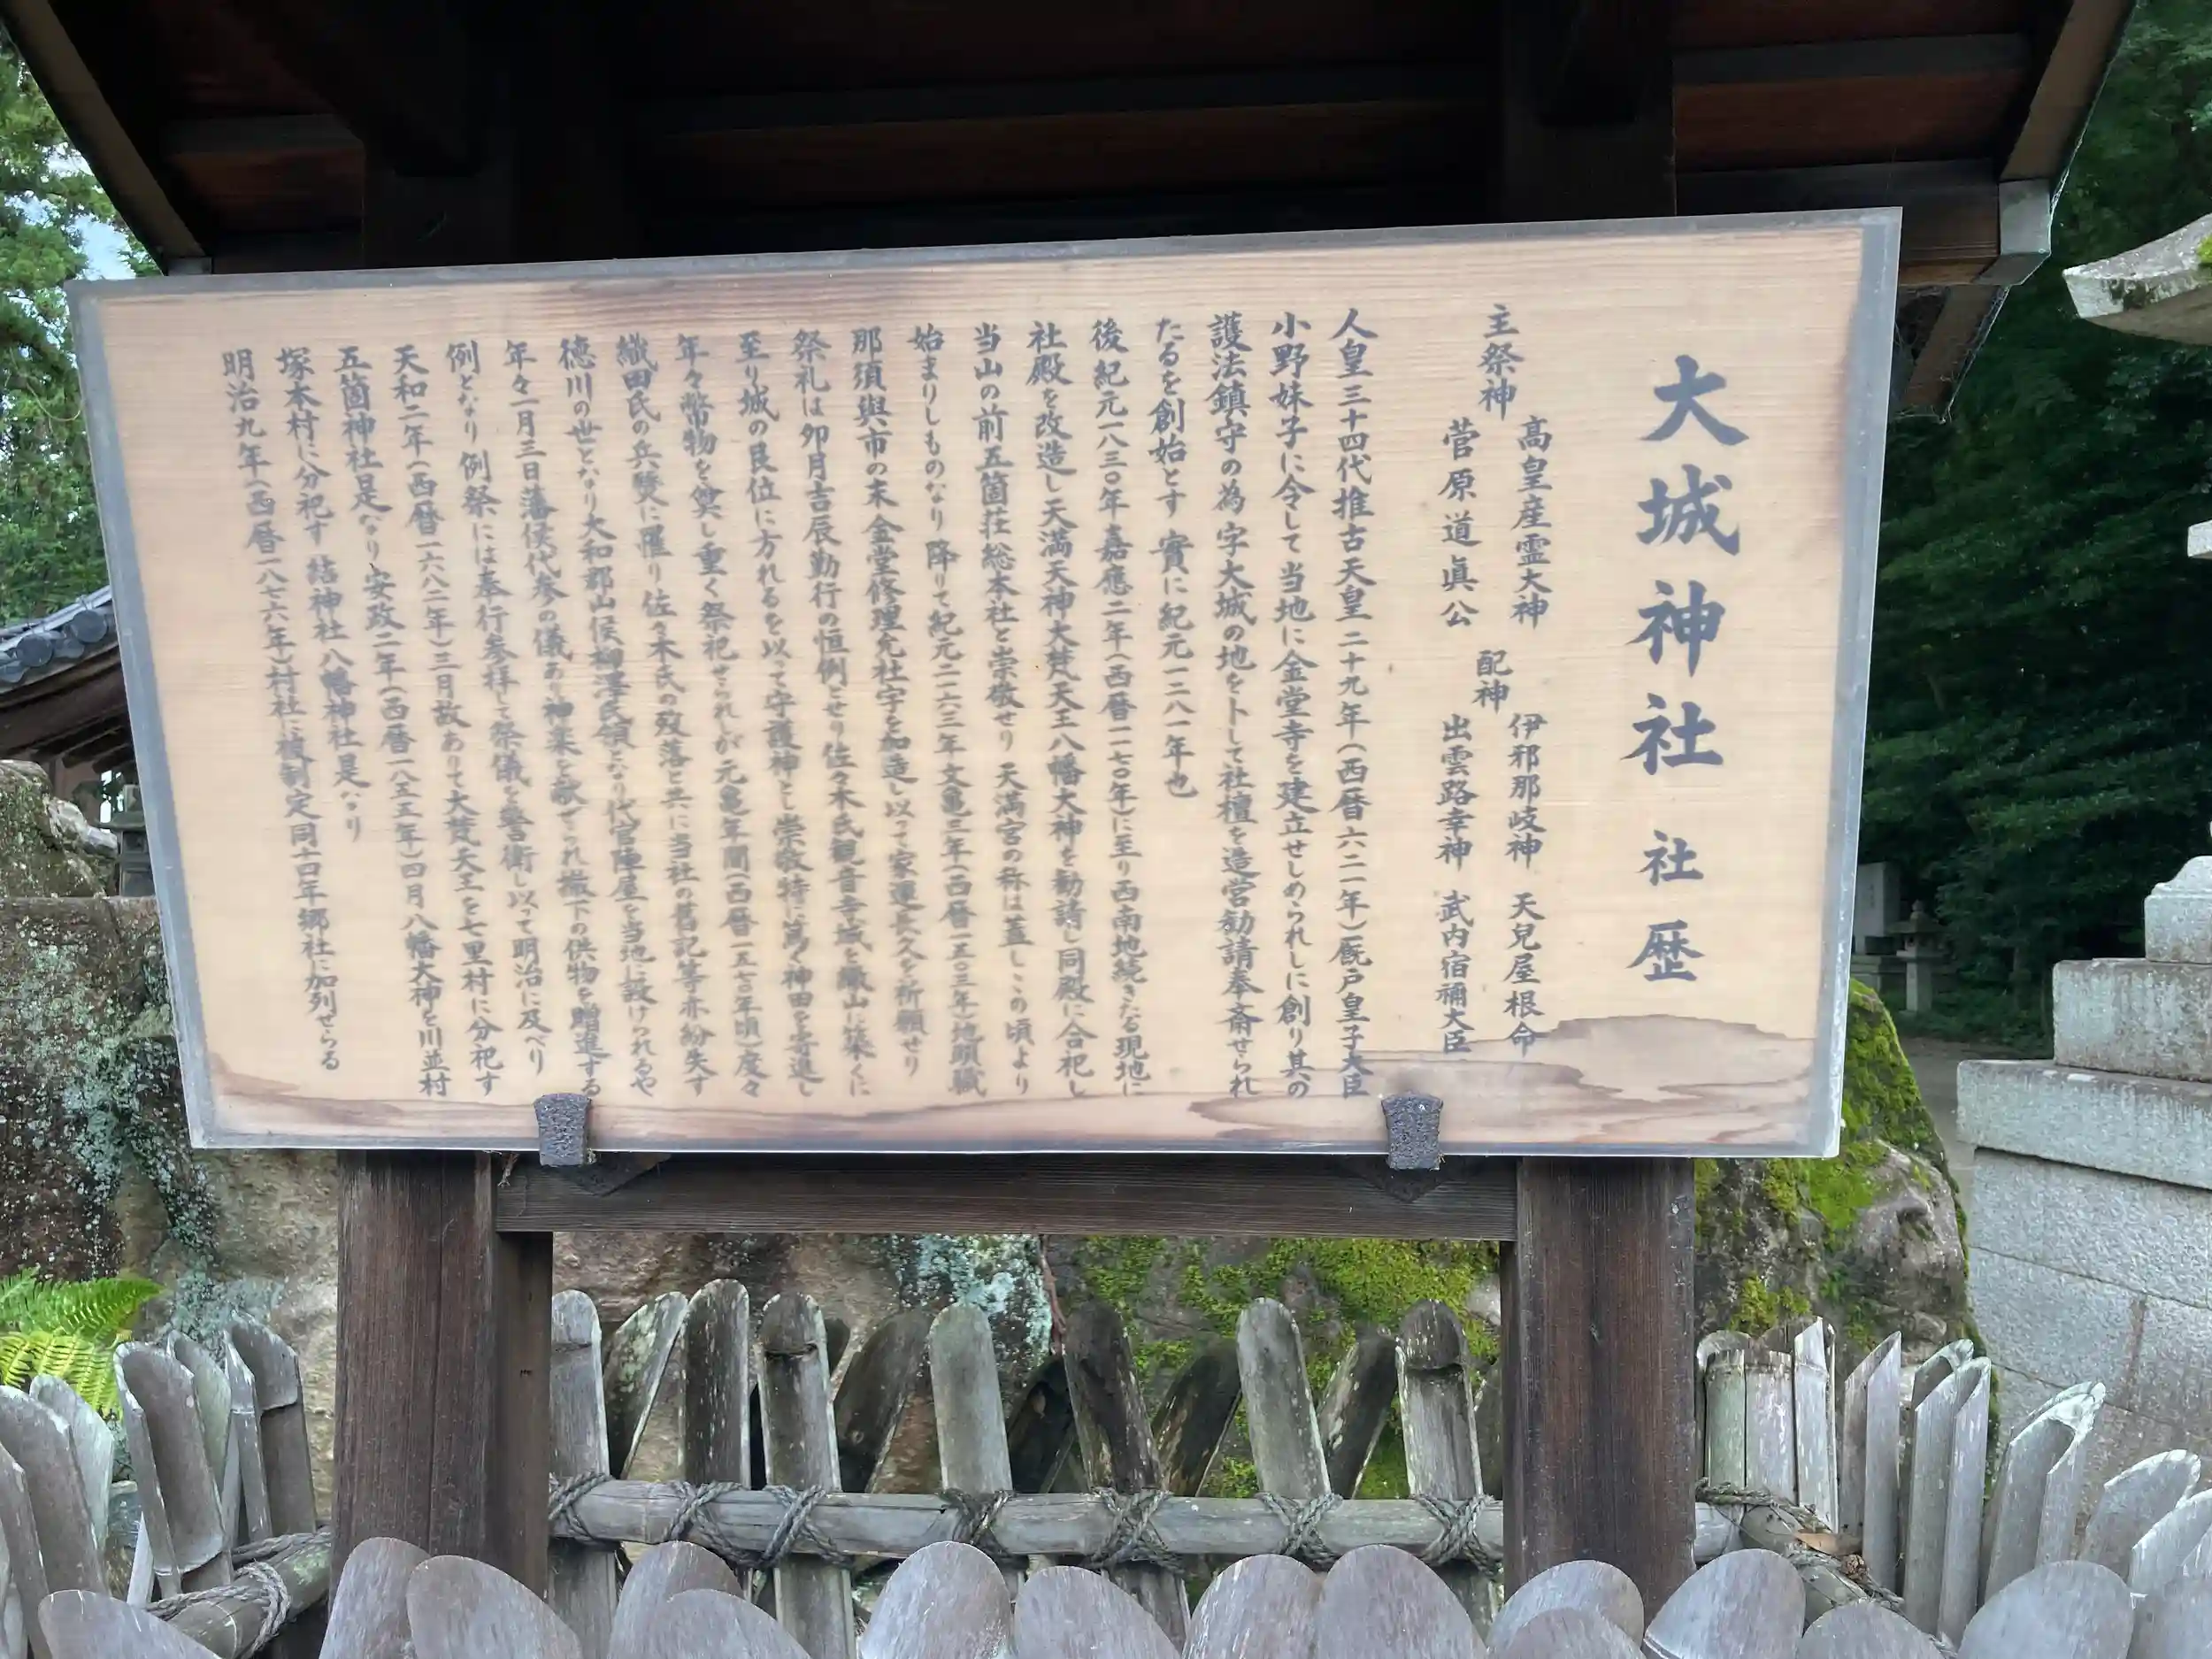 大城神社 社歴
主祭神 高皇産霊大神 菅原道眞公
配神 伊邪那岐神 天兒屋根命 出雲路幸神 武内宿禰大臣
人皇三十四代推古天皇二十九年(西暦六二一年)厩戸皇子大臣
小野妹子に令して当地に金堂寺を建立せしめられしに創り其の
護法鎮守の為字大城の地を卜して社檀を造営勧請奉斎せられ
たるを創始とす 實に紀元一二八一年也
後紀元一八三〇年嘉應二年(西暦一一七〇年)に至り西南地続きたる現地に
社殿を改造し天満天神大梵天王八幡大神を勧請し同殿に合祀し
当山の前五箇荘総本社と崇敬せり 天満宮の称は蓋しこの頃より
始まりしものなり 降りて紀元二一六三年文亀三年(西暦一五〇三年)地頭職
那須與市の末金堂修理允社宇を加造し以って家運長久を祈願せり
祭礼は卯月吉辰勤行の恒例とせり 佐々木氏観音寺城を繖山に築くに
至り城の艮位に方れるを以って守護神とし崇敬特に篤く神田を寄進し
年々幣物を奠し重く祭祀せられしが 元亀年間(西暦一五七〇年頃)度々
織田氏の兵燹に罹り佐々木氏の歿落と共に当社の舊記等亦紛失す
徳川の世となり大和郡山侯柳澤氏領となり代官陣屋を当地に設けられるや
年々一月三日藩侯代参の儀あり神楽を献ぜられ撤下の供物を贈進する
例となり 例祭には奉行参拝して祭儀を警衛し以って明治に及べり
天和二年(西暦一六八二年)三月故ありて大梵天王を七里村に分祀す
五箇神社是なり 安政二年(西暦一八五五年)四月八幡大神を川並村
塚本村に分祀す 結神社八幡神社是なり
明治九年(西暦一八七六年)村社に被制定同十四年郷社に加列せらる